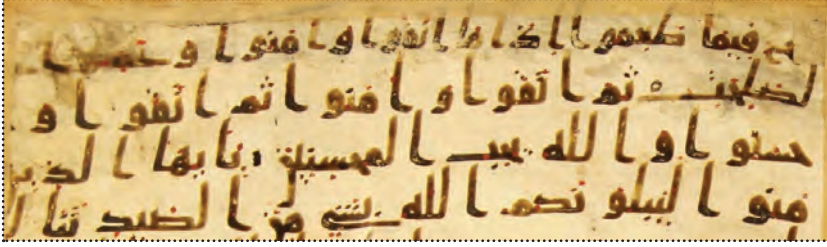 ح فيما طعموا اذا ما اتقوا وامنوا وعملوا ا
لصلحت ثم اتقوا وامنوا ثم اتقوا وا
حسنوا والله يحب المحسنين يايها الذين
منوا ليبلونكم الله بشي من الصيد تنا